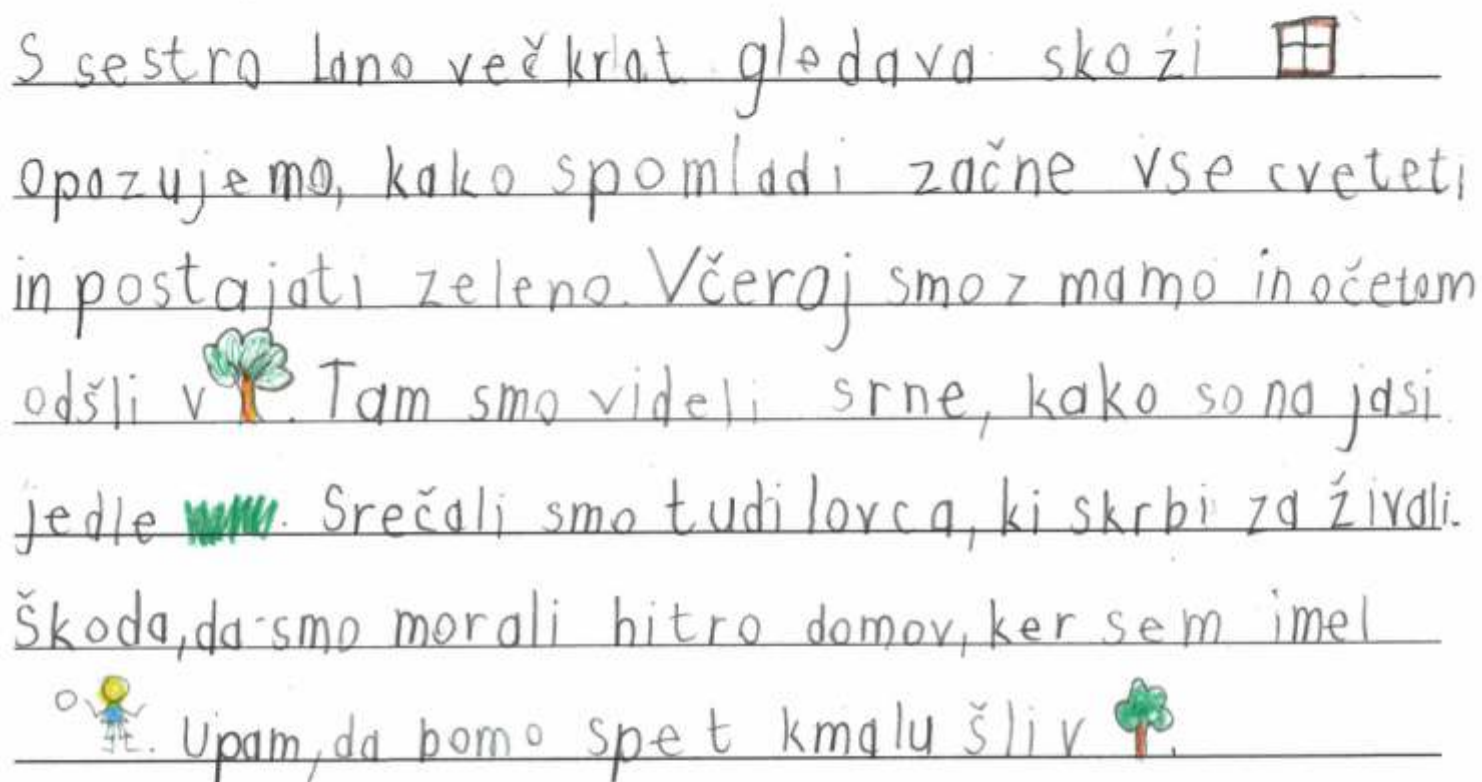 S sestro Lano večkrat gledava skozi
opazujemo, kako spomladi začne vse cveteti
in postajati zeleno. Včeraj smo z mamo in očetom
odšli v . Tam smo videli srne, kako so na jasi
jedle . Srečali smo tudi lovca, ki skrbi za živali.
Škoda, da smo morali hitro domov, ker sem imel
. Upam, da bomo spet kmalu šli v .